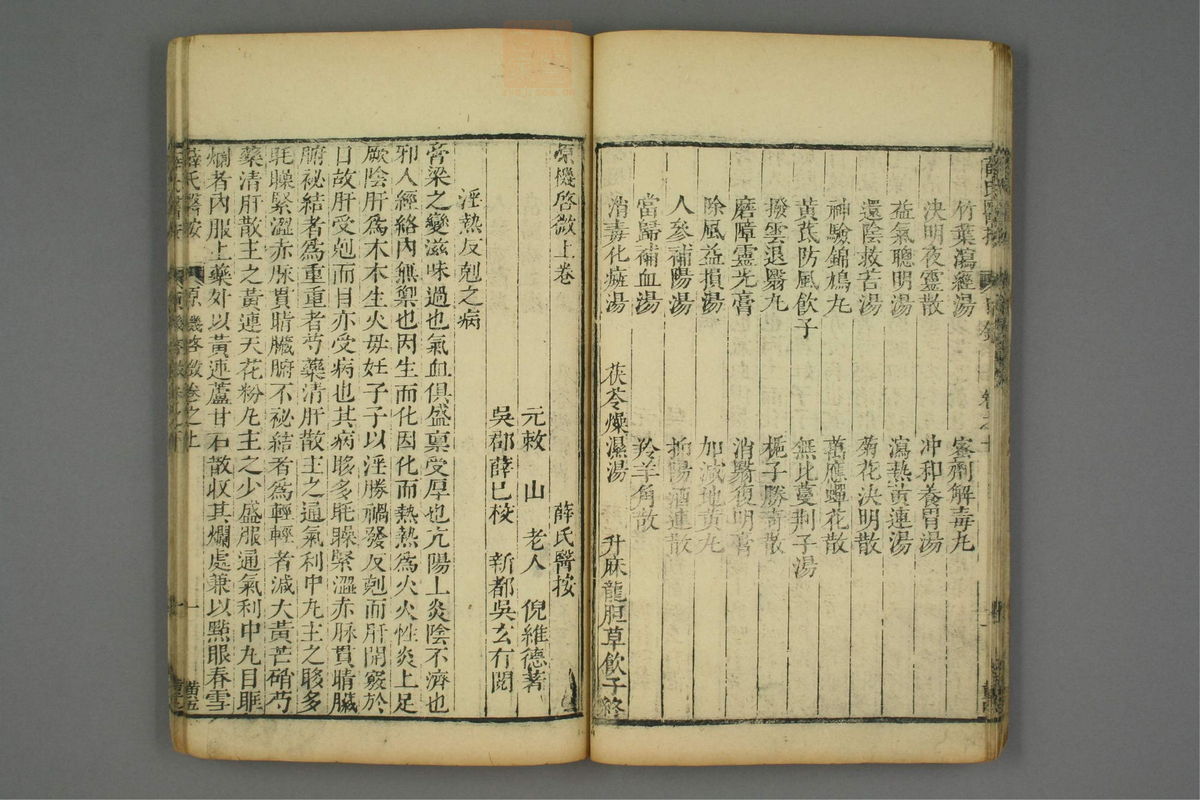 竹葉瀉經湯 蜜劑解毒丸
決明夜靈散 冲和養胃湯
益氣聰明湯 瀉熱黃連湯
還陰救苦湯 菊花決明散
神驗錦鳩丸 萬應蟬花散
黃茋防風飲子 無比蔓荆子湯
撥雲退翳丸 梔子勝竒散
磨障靈光膏 消翳復明膏
除風益損湯 加減地黃丸
人參補陽湯 抑陽酒連散
當歸補血湯 羚羊角散
消毒化癍湯 茯苓燥濕湯 升麻龍胆草飲子終
原機啓微上卷 薛氏醫按
元敕 山 老人 倪維德著
吳郡薛已校 新都吳玄有閱
淫熱反剋之病
膏梁之變滋味過也氣血俱盛稟受厚也亢陽上炎陰不濟也
邪入經絡內無禦也因生而化因化而熱熱爲火火性炎上足
厥陰肝爲木木生火母妊子子以淫勝禍發反剋而肝開竅於
目故肝受剋而目亦受病也其病眵多眊矂緊澀赤脉貫睛臟
腑祕結者爲重重者芍藥清肝散主之通氣利中丸主之眵多
眊矂緊澀赤脉貫睛臟腑不祕結者爲輕輕者減大黃芒硝芍
藥清肝散主之黃連天花粉丸主之少盛服通氣利中丸目眶
爛者內服上藥外以黃連蘆甘石散收其爛處兼以點眼春雪
薛氏醫按 原機啓微卷之上 一 黃五